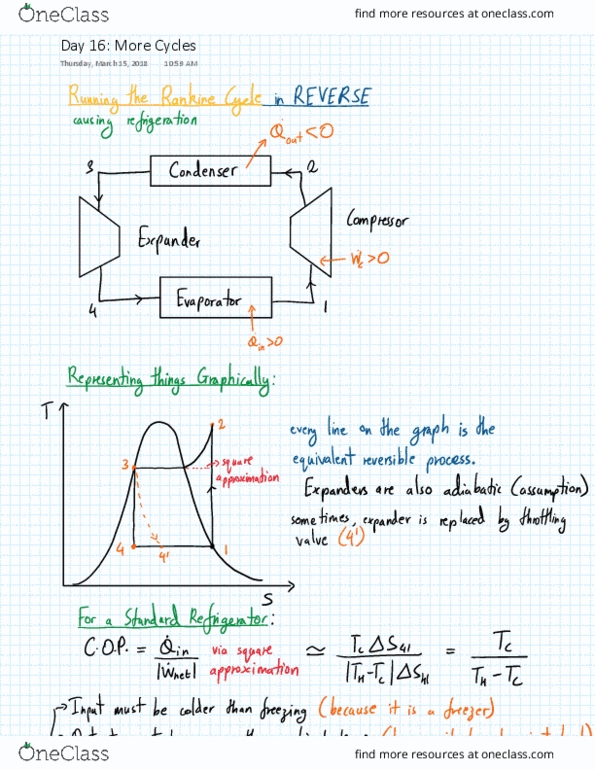 OneClass
find more resources at oneclass.com
Day 16: More Cycles
Thursday, March 15, 2018 10:59 AM
Running the Rankine Cycle in REVERSE
causing refrigeration
Q̇out<0
3
Condenser
2
Expander
Compressor
Ẇc>0
4
Evaporator
1
Q̇in>0
Representing things Graphically:
T
2
3
square
approximation
4
4'
1
S
every line on the graph is the
equivalent reversible process.
Expanders are also adiabatic (assumption)
sometimes, expander is replaced by throttling
valve (4')
For a Standard Refrigerator:
C.O.P. = Q̇in / |Ẇnet| via square approximation ≃ Tc ΔS41 / |TH-Tc|ΔS41 = Tc / TH - Tc
Input must be colder than freezing (because it is a freezer)
OneClass
find more resources at oneclass.com